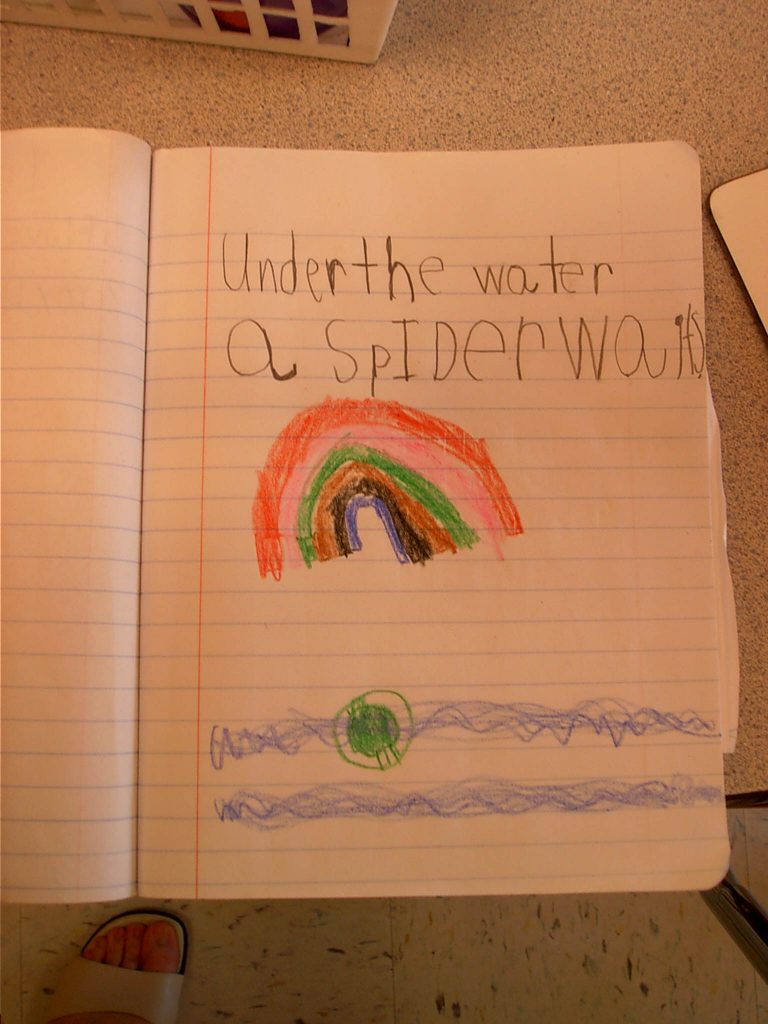 Under the water
a SpIDer waits